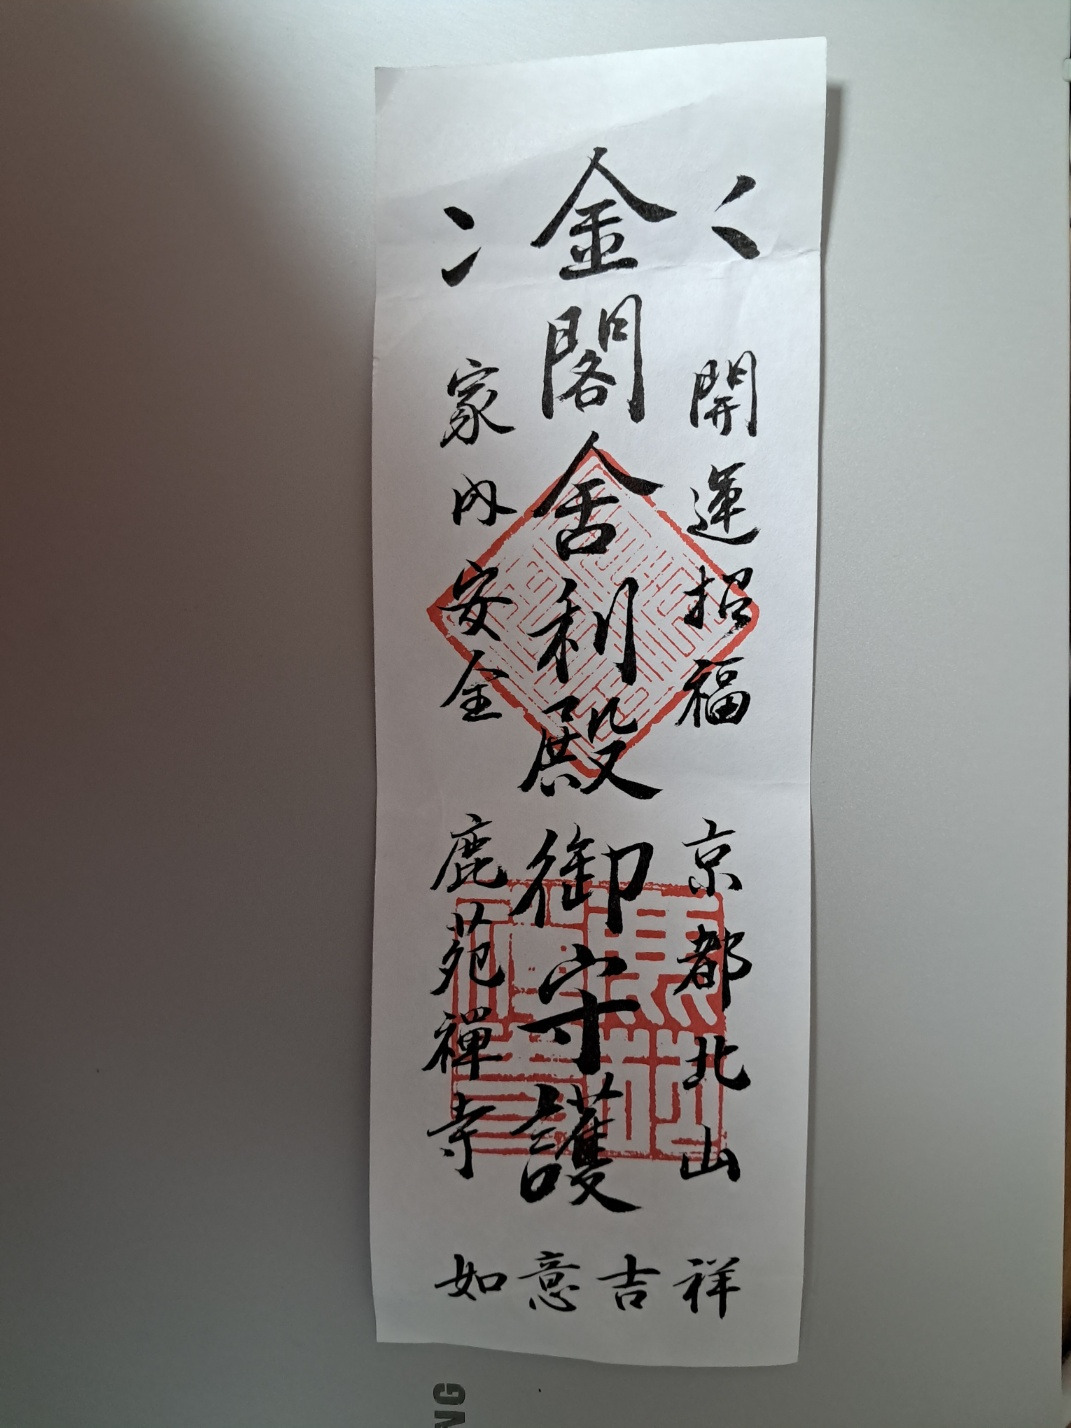 開運招福 京都北山
金閣舎利殿御守護
家内安全 鹿苑禅寺
如意吉祥
NG